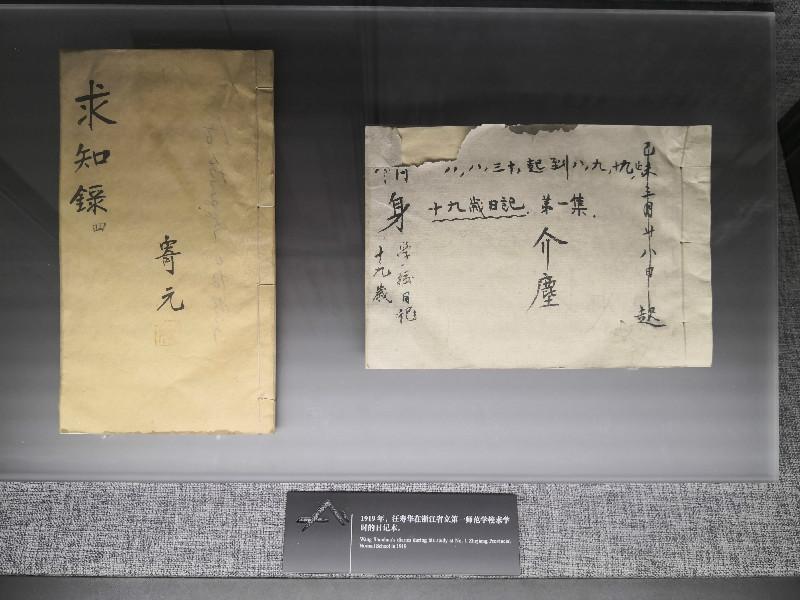 求知錄
四
寄元
八，八，三十，起到八，九，十九，止
十九歲日記．第一集．
介塵
身
十九歲
日記
己未三月廿八日起
1919年，汪寿华在浙江省立第一师范学校求学
时的日记本。
Wang Shouhua's diaries during his study at No. 1 Zhejiang Provincial
Normal School in 1919